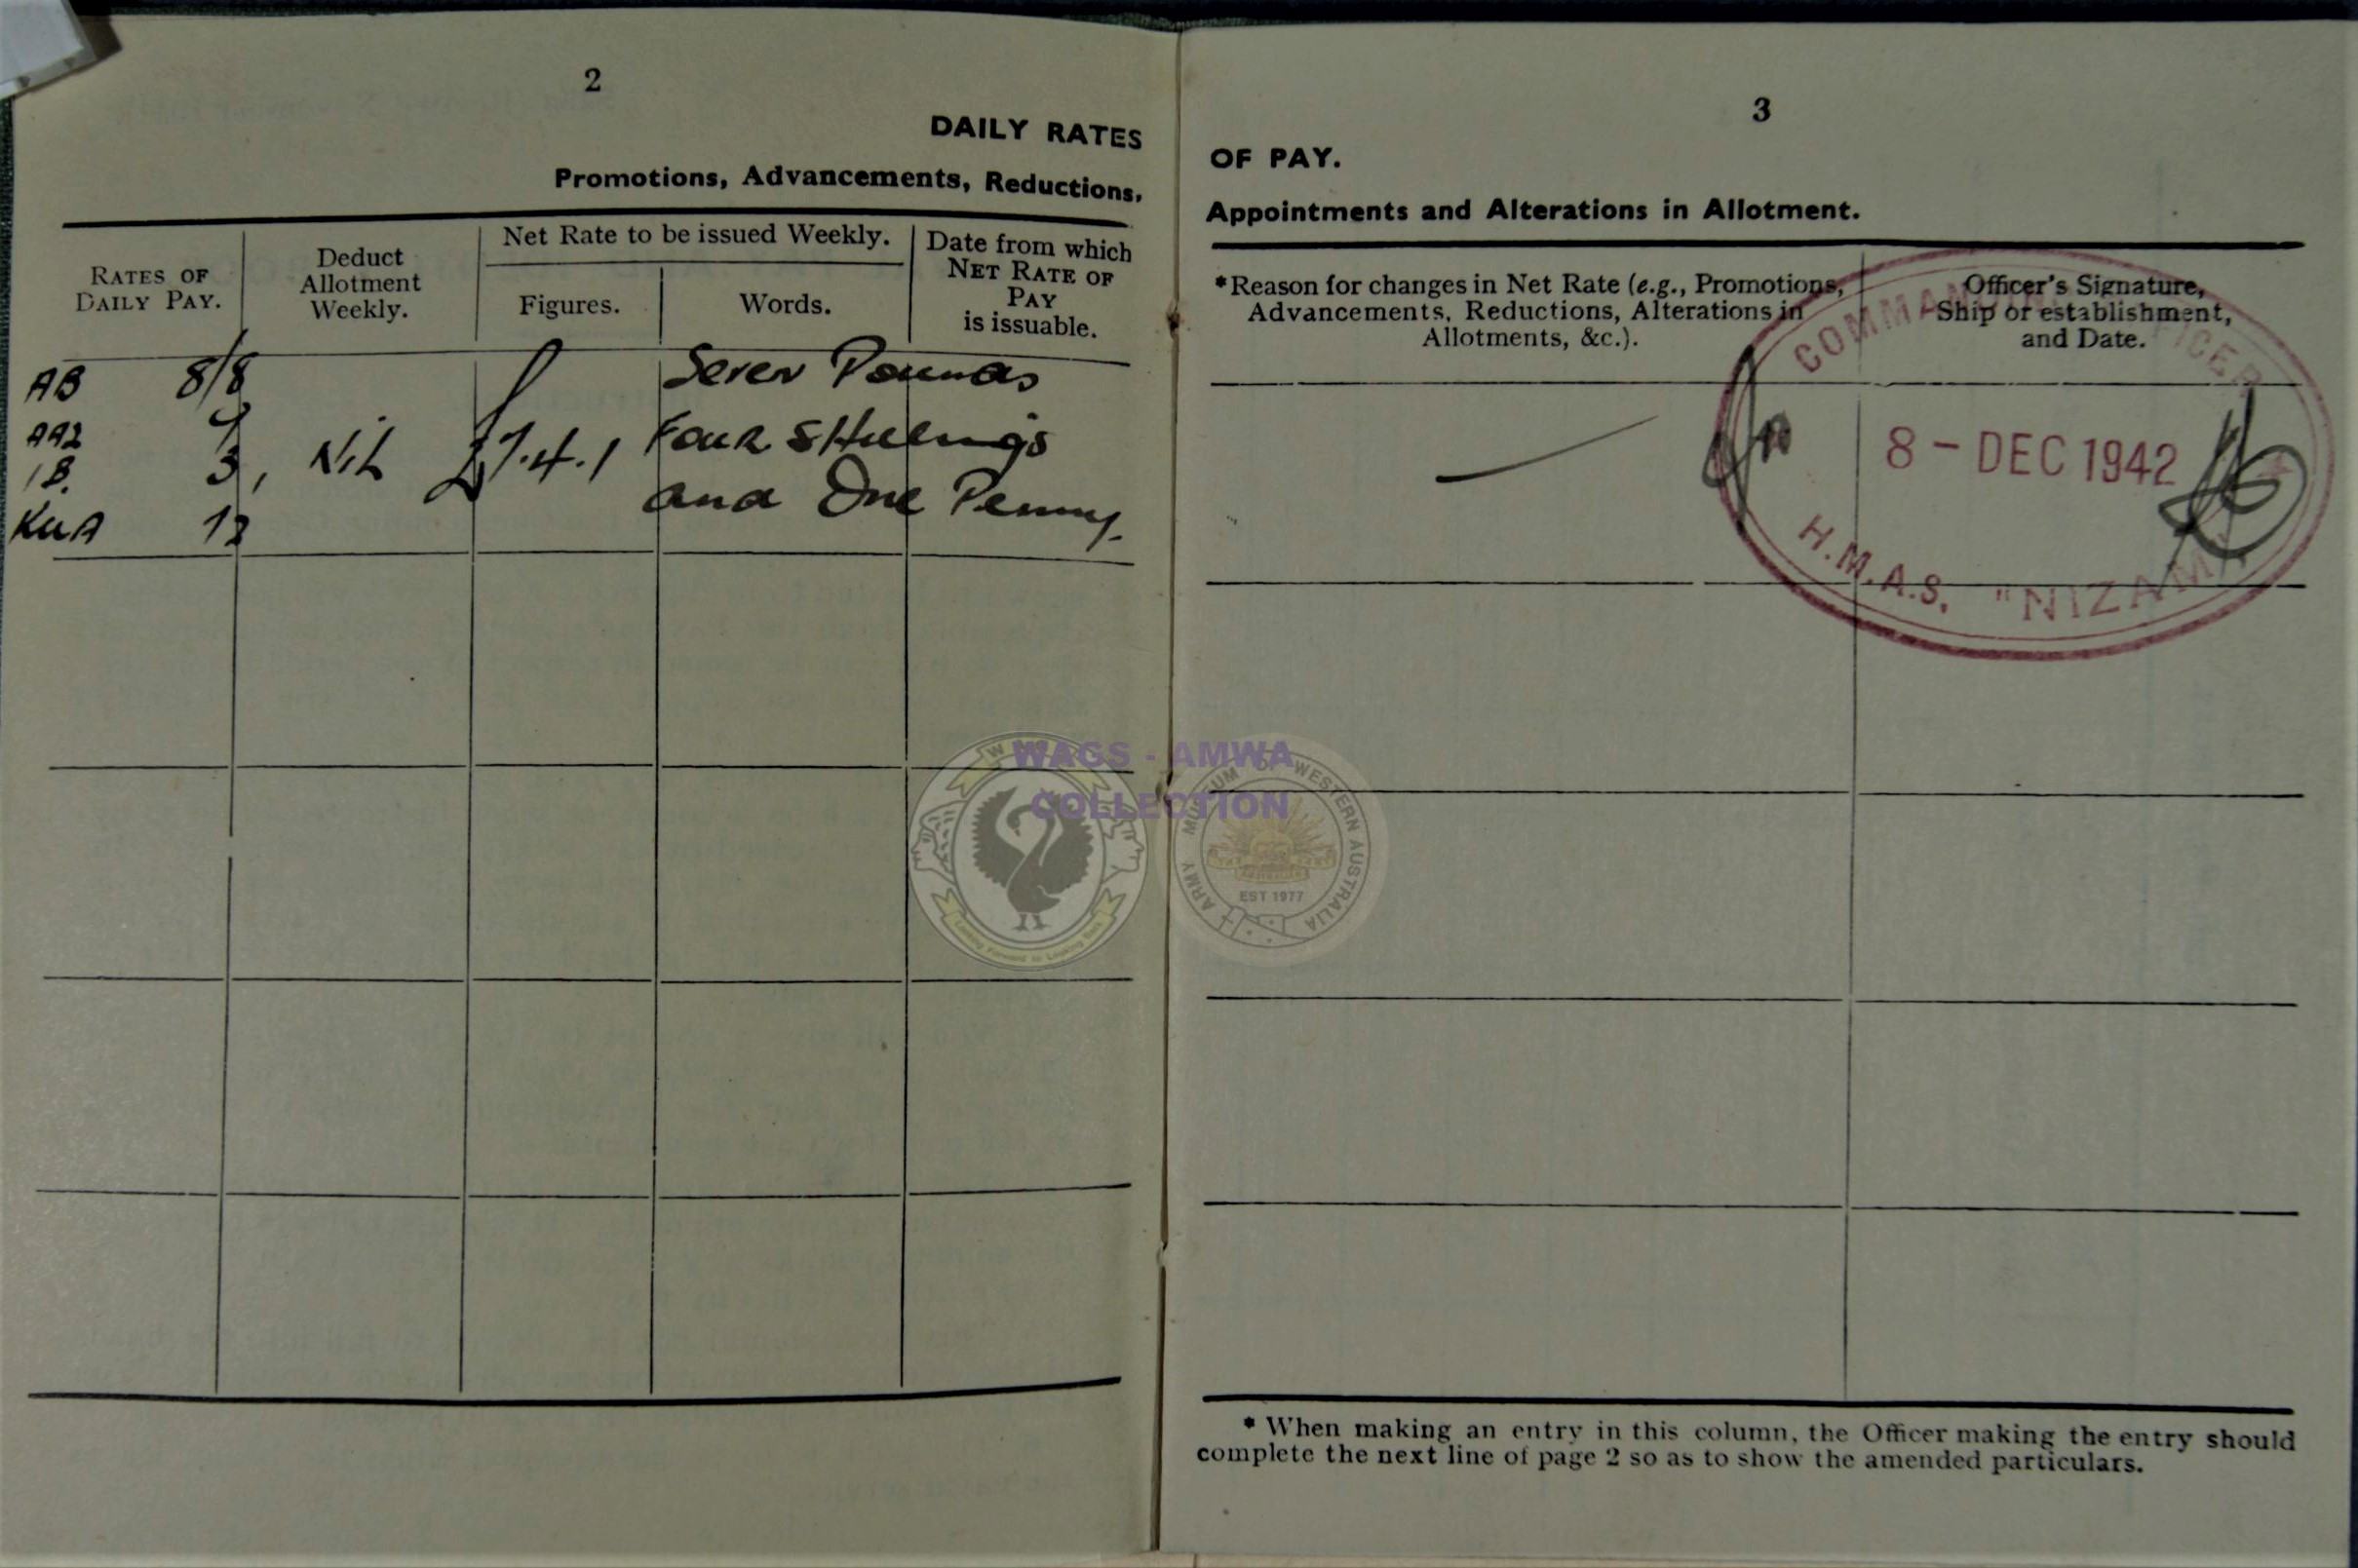 2
DAILY RATES
Promotions, Advancements, Reductions,
RATES OF
DAILY PAY.
Deduct
Allotment
Weekly.
Net Rate to be issued Weekly.
Figures.
Words.
Date from which
NET RATE OF
PAY
is issuable.
AB 8/8
AA2
1B. 3,
KUA 13
Nil
£7.4.1
Seven Pounds
Four Shillings
and One Penny.
3
OF PAY.
Appointments and Alterations in Allotment.
*Reason for changes in Net Rate (e.g., Promotions,
Advancements, Reductions, Alterations in
Allotments, &c.).
Officer's Signature,
Ship or establishment,
and Date.
COMMANDING OFFICER
8 - DEC 1942
H.M.A.S. "NIZAM"
* When making an entry in this column, the Officer making the entry should
complete the next line of page 2 so as to show the amended particulars.
WAGS - AMWA
COLLECTION
Looking Forward to Looking Back
ARMY MUSEUM OF WESTERN AUSTRALIA
EST 1977